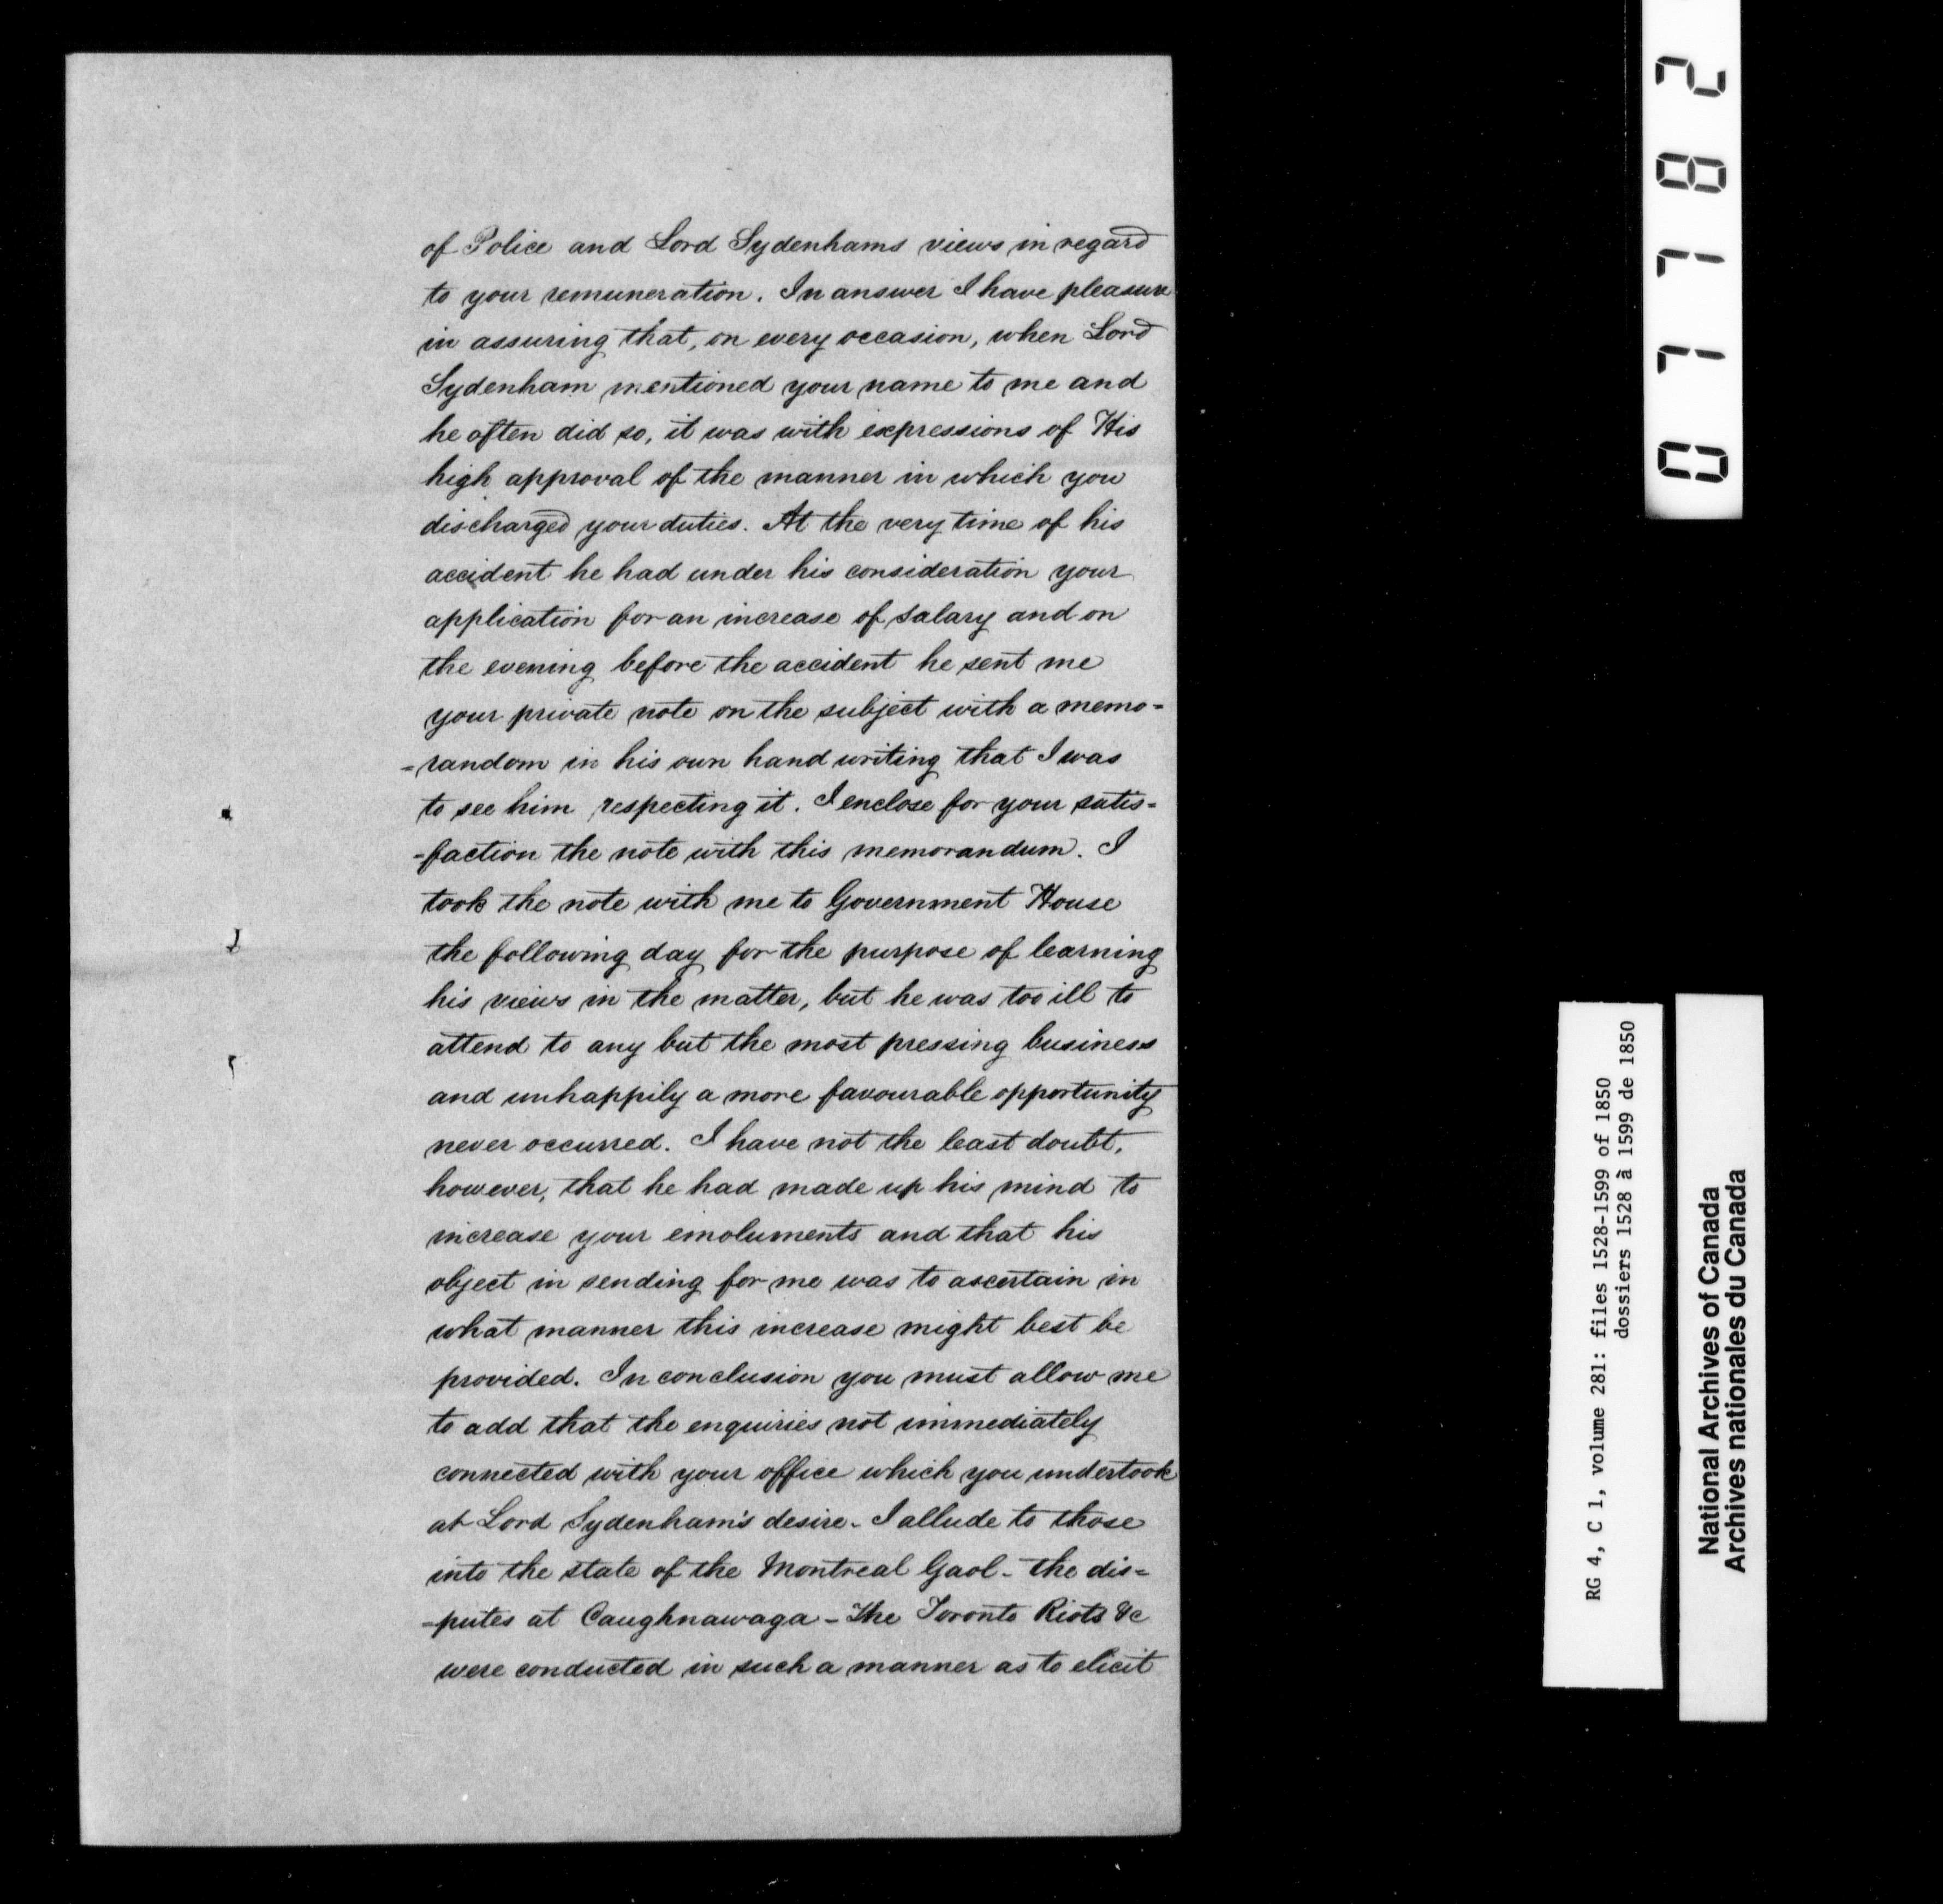 of Police and Lord Sydenhams views in regard
to your remuneration. In answer I have pleasure
in assuring that, on every occasion, when Lord
Sydenham mentioned your name to me and
he often did so, it was with expressions of His
high approval of the manner in which you
discharged your duties. At the very time of his
accident he had under his consideration your
application for an increase of salary and on
the evening before the accident he sent me
your private note on the subject with a memo=
=random in his own hand writing that I was
to see him respecting it. I enclose for your satis=
=faction the note with this memorandum. I
took the note with me to Government House
the following day for the purpose of learning
his views in the matter, but he was too ill to
attend to any but the most pressing business
and unhappily a more favourable opportunity
never occurred. I have not the least doubt,
however, that he had made up his mind to
increase your emoluments and that his
object in sending for me was to ascertain in
what manner this increase might best be
provided. In conclusion you must allow me
to add that the enquiries not immediately
connected with your office which you undertook
at Lord Sydenham's desire - I allude to those
into the state of the Montreal Gaol - the dis=
=putes at Caughnawaga - The Toronto Riots &c
were conducted in such a manner as to elicit
077182
RG 4, C 1, volume 281: files 1528-1599 of 1850
dossiers 1528 à 1599 de 1850
National Archives of Canada
Archives nationales du Canada